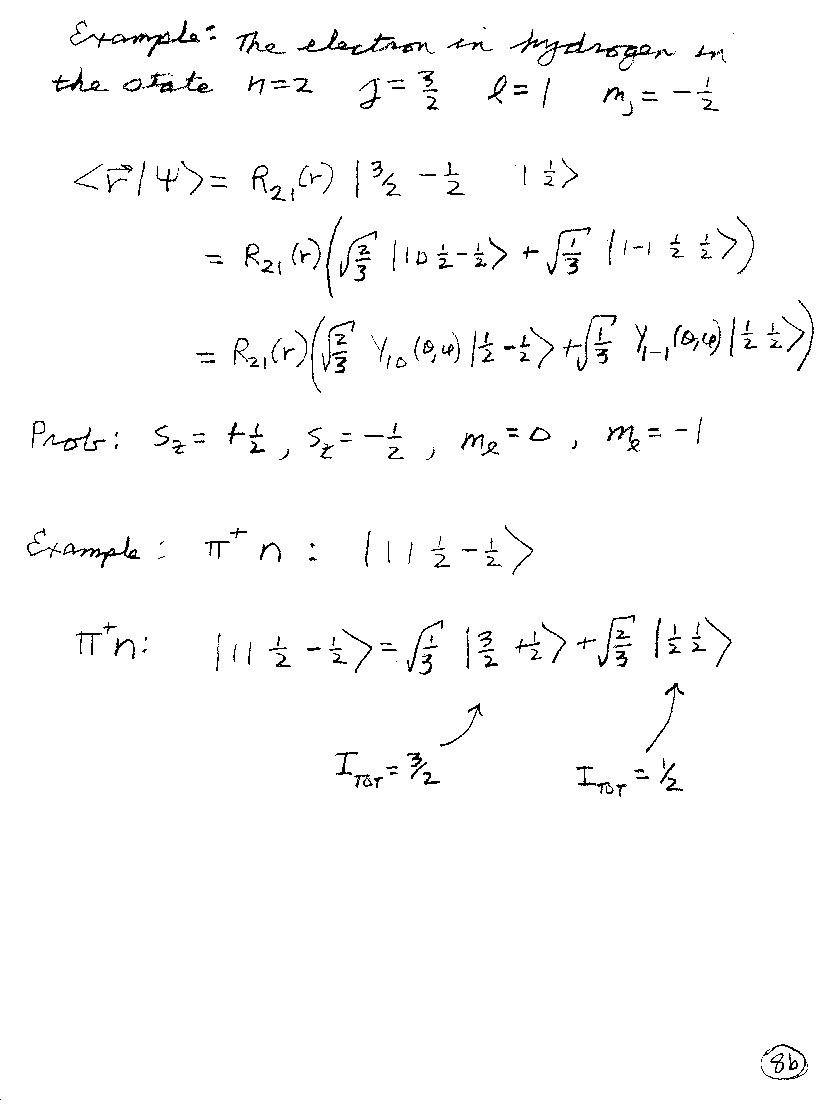 Example: The electron in hydrogen in
the state n=2 j=3/2 l=1 m_j = -1/2
<r⃗|ψ> = R₂₁(r) |3/2 -1/2 1 1/2>
= R₂₁(r)(√(2/3) |10 1/2 -1/2> + √(1/3) |1-1 1/2 1/2>)
= R₂₁(r)(√(2/3) Y₁₀(θ,φ)|1/2 -1/2> + √(1/3) Y₁₋₁(θ,φ)|1/2 1/2>)
Prob: S_z = +1/2, S_z = -1/2, m_l = 0, m_l = -1
Example: π⁺n: |11 1/2 -1/2>
π⁺n: |11 1/2 -1/2> = √(1/3) |3/2 +1/2> + √(2/3) |1/2 1/2>
I_TOT = 3/2 I_TOT = 1/2
8b